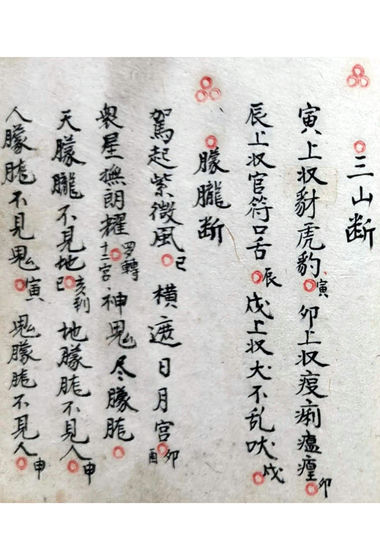 三山断
寅上収豺虎豹寅 卯上収疫痢瘟瘟卯
辰上収官符口舌辰 戌上収犬不乱吠戌
朦胧断
驾起紫微風巳 横遮日月宫卯酉
衆星撫朗耀十二宫罗轉 神鬼尽朦胧
天朦朧不見地亥到巳 地朦胧不見人申
人朦胧不見鬼寅 鬼朦胧不見人申